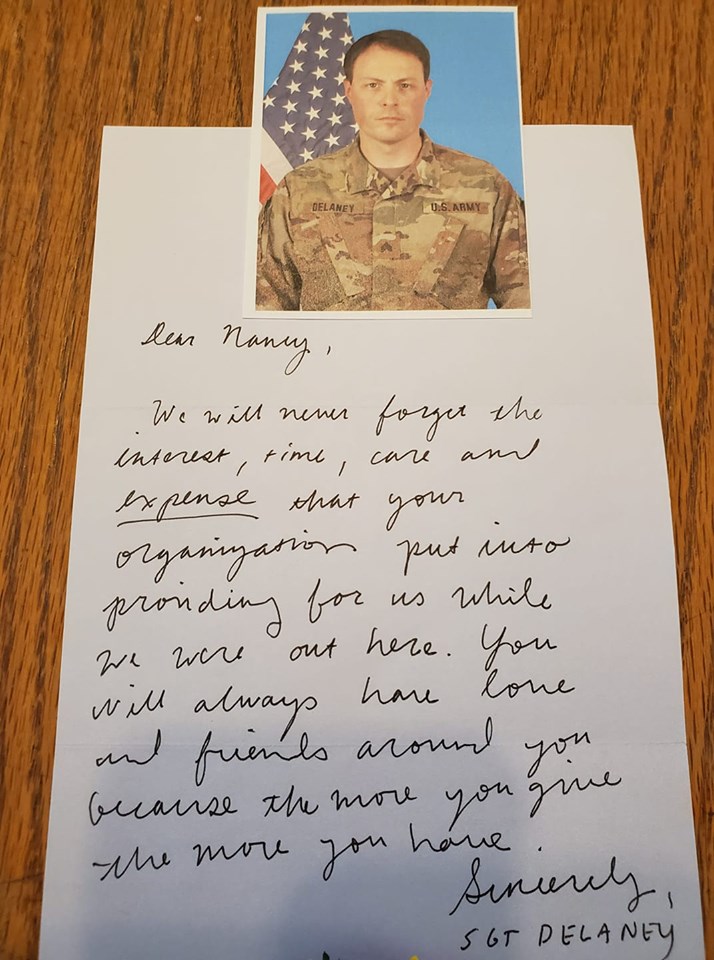 DELANEY U.S. ARMY
Dear Nancy,
We will never forget the
interest, time, care and
expense that your
organization put into
providing for us while
we were out here. You
will always have love
and friends around you
because the more you give
the more you have.
Sincerely,
SGT DELANEY